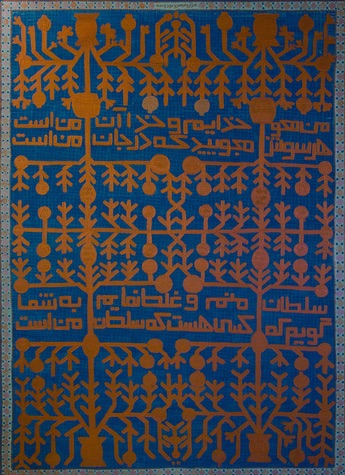 من محو خدایم و خدا آن من است
هر سوش مجویید که در جان من است
سلطان منم و غلط نمایم به شما
گویم که کسی هست که سلطان من است